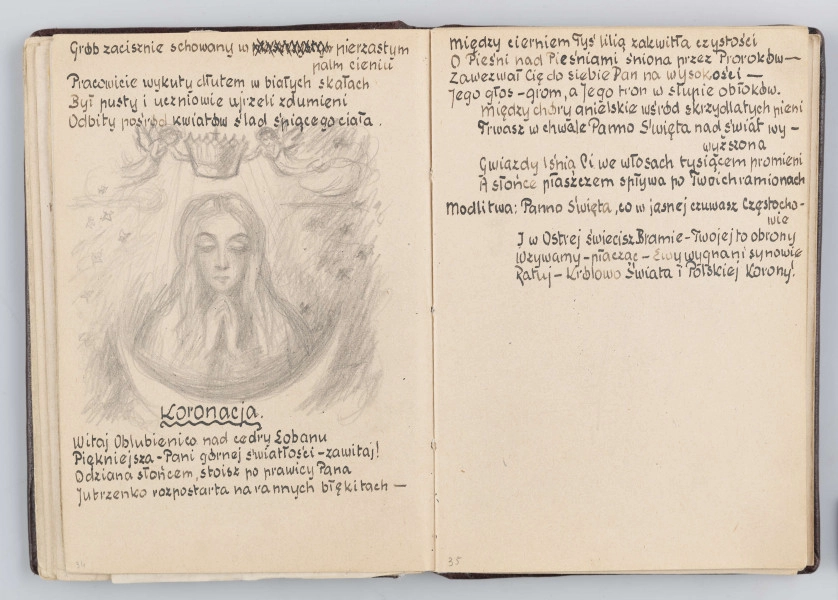 Grób zacisznie schowany w pierzastym
palm cieniu
Pracowicie wykuty dłutem w białych skałach
Był pusty i uczniowie ujrzeli zdumieni
Odbity pośród kwiatów ślad śpiącego ciała.
Koronacja.
Witaj Oblubienico nad cedry Lobanu
Piękniejsza - Pani górnej światłości - zawitaj!
Odziana słońcem, stoisz po prawicy Pana
Jutrzenko rozpostarta na rannych błękitach —
34
Między cierniem Tyś lilią zakwitła czystości
O Pieśni nad Pieśniami śniona przez Proroków—
Zawezwał Cię do siebie Pan na wysokości —
Jego głos - grom, a Jego tron w słupie obłoków.
Między chóry anielskie wśród skrzydlatych pieni
Trwasz w chwale Panno Święta nad świat wy-
wyższona
Gwiazdy lśnią Ci we włosach tysiącem promieni
A słońce płaszczem spływa po Twoich ramionach
Modlitwa: Panno Święta, co w jasnej czuwasz Częstocho-
wie
I w Ostrej świecisz Bramie - Twojej to obrony
Wzywamy - płacząc - Ewy wygnani synowie
Ratuj - Królowo Świata i Polskiej Korony!
35